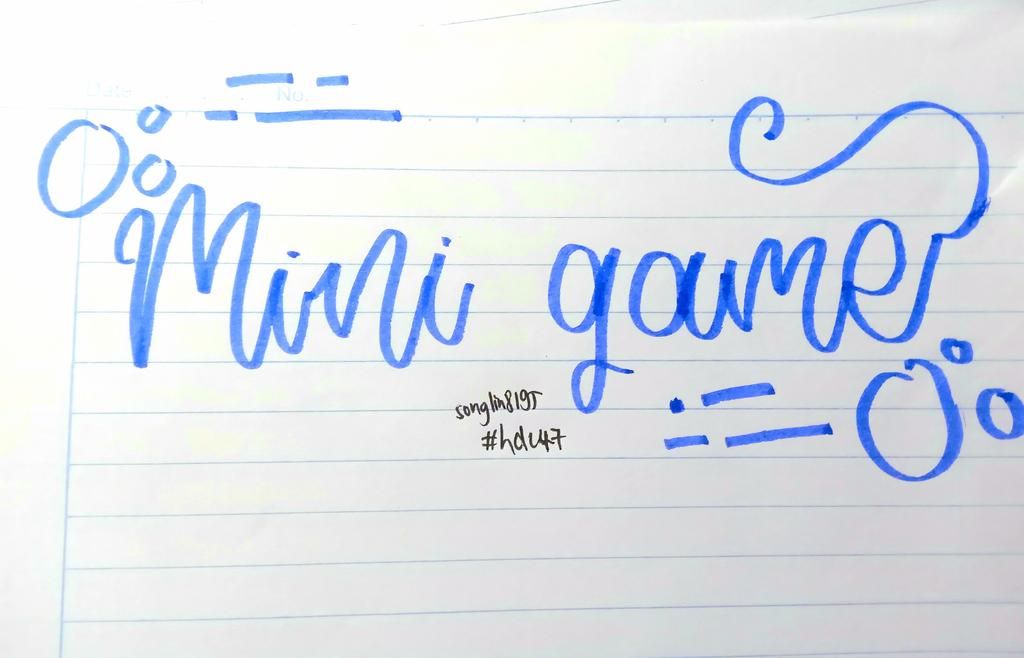 Date No.
Mini game
songlin8195
#hdc47